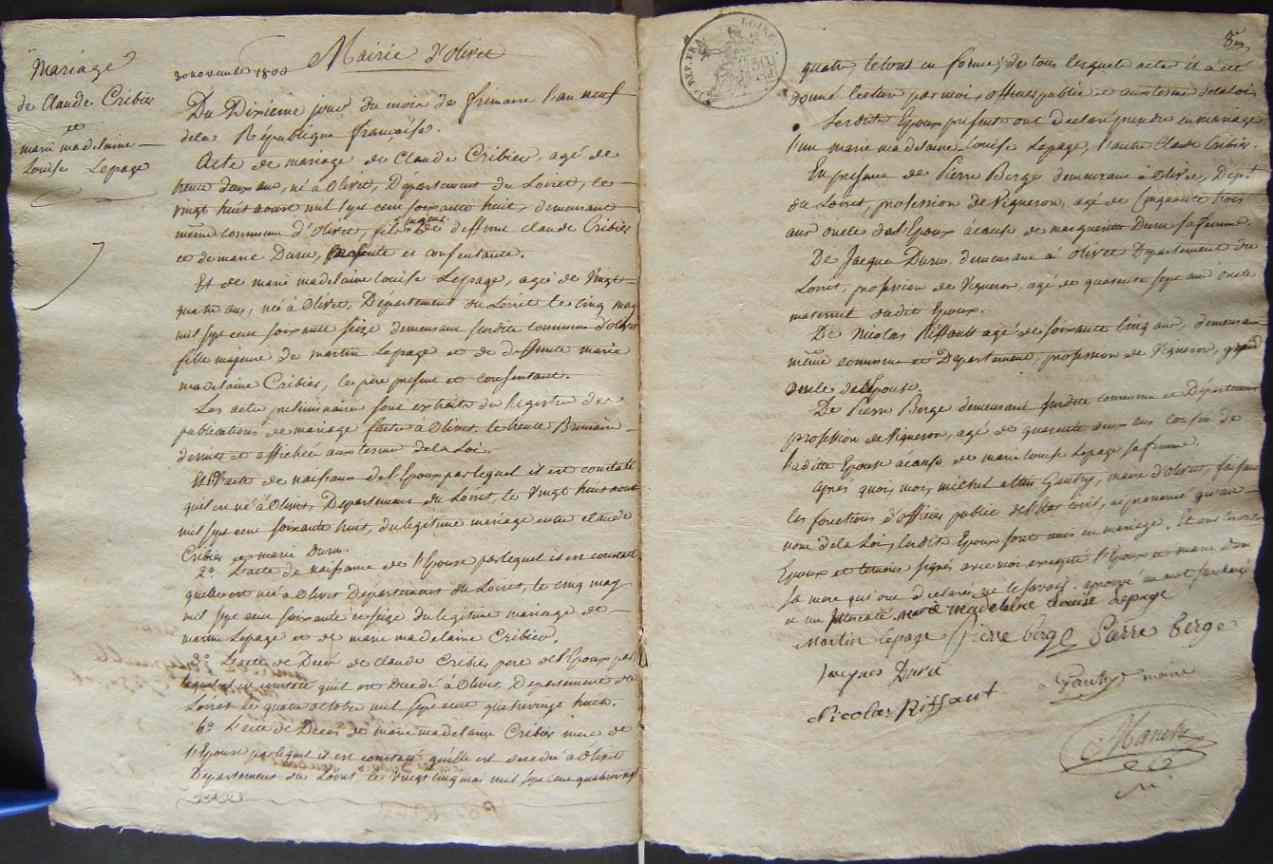 Mariage
de Claude Cribier
et
marie madelaine
Louise Lepage
Mairie d'olivet
Du Dixieme jour du mois de frimaire l'an neuf
de la République française.
Acte de mariage de Claude Cribier, agé de
trente deux ans, né à Olivet, Département du Loiret, le
vingt huit aoust mil sept cent soixante huit, demeurant
même commune d'Olivet, fils majeur de deffunt Claude Cribier
et de marie Duru, présente et consentante.
Et de marie madelaine Louise Lepage, agée de Vingt
quatre ans, née à Olivet, Département du Loiret le cinq may
mil sept cent soixante seize demeurant susdite commune d'olivet
fille majeure de martin Lepage et de deffunte marie
madelaine Cribier, les père présent et consentant.
Les actes preliminaires sont extraits du Registre des
publications de mariage faites à Olivet le trente Brumaire
dernier et affichée aux terme de la Loi.
acte de naissance de l'Epoux par lequel il est constaté
qu'il est né à Olivet, Département du Loiret, le Vingt huit aoust
mil sept cent soixante huit, du légitime mariage entre claude
Cribier et marie Duru.
2° L'acte de naissance de l'Epouse par lequel il est constaté
quelle est née à Olivet Département du Loiret, le cinq may
mil sept cent soixante et seize du légitime mariage de
martin Lepage et de marie madelaine Cribier.
L'acte de Decès de Claude Cribier pere de l'Epoux par
lequel il est constaté qu'il est Decedé à Olivet, Département du
Loiret le quatre octobre mil sept cent quatre vingt huit.
L'acte de Decès de marie madelaine Cribier mere de
l'Epouse par lequel il est constaté qu'elle est decedée à Olivet
Département du Loiret le vingt cinq mai mil sept cent quatre vingt
quatre, le tout en forme; de tous lesquels actes il a été
donné lecture par moi, officier public et aux termes de la loi
Les dits Epoux présents ont declaré prendre en mariage
l'un marie madelaine Louise Lepage, l'autre Claude Cribier.
En présence de Pierre Berge demeurant à Olivet, Dépt
du Loiret, profession de Vigneron, agé de Cinquante trois
ans oncle de l'Epoux à cause de marguerite Duru sa femme.
De Jacque Duru demeurant à olivet Département du
Loiret, profession de Vigneron, agé de quarante sept ans oncle
maternel du dit Epoux.
De Nicolas Riffault agé de soixante cinq ans, demeurant
même commune et Département, profession de Vigneron, grand
oncle de l'Epouse.
De Pierre Berge demeurant susdite commune et Département
profession de Vigneron, agé de quarante deux ans cousin de
laditte Epouse à cause de marie Louise Lepage sa femme.
Après quoi, moi, michel Gautry, maire d'olivet, faisant
les fonctions d'officier public de l'état civil, ai prononcé qu'au
nom de la Loi, les dits Epoux sont unis en mariage. Et ont les dits
Epoux et temoins signés avec moi excepté l'Epoux et marie Duru
sa mere qui ont declaré ne le savoir.
marie madelaine Louise Lepage
Martin Lepage Pierre berge Pierre Berge
Jacques Duru
Nicolas Riffaut
Gautry maire